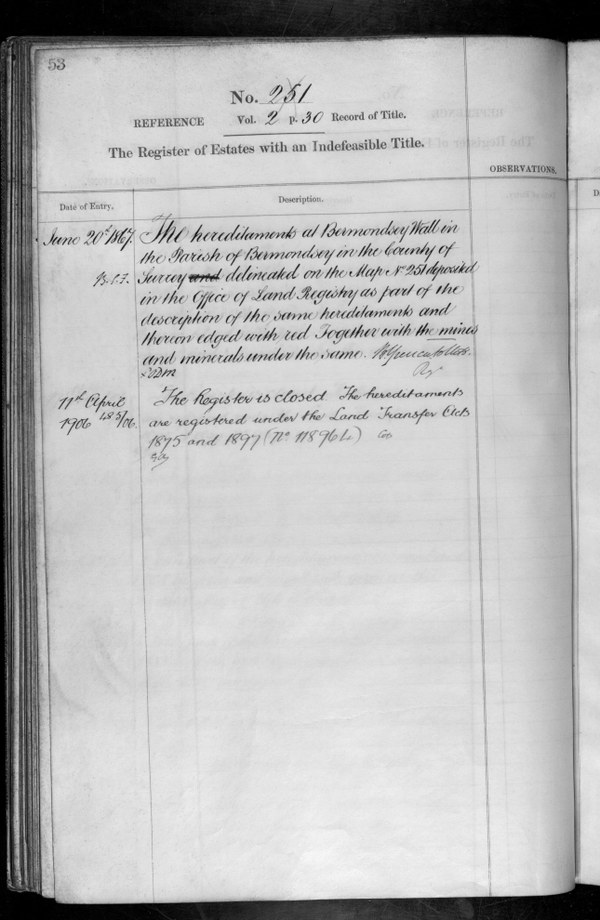 53
No. 251
REFERENCE Vol. 2 p. 30 Record of Title.
The Register of Estates with an Indefeasible Title.
OBSERVATIONS.
Date of Entry.
Description.
June 20th 1867. The hereditaments at Bermondsey Wall in
the Parish of Bermondsey in the County of
Surrey and delineated on the Map No 251 deposited
in the Office of Land Registry as part of the
description of the same hereditaments and
thereon edged with red Together with the mines
and minerals under the same.
11th April The Register is closed The hereditaments
1906 are registered under the Land Transfer Acts
1875 and 1897 (No 118964)